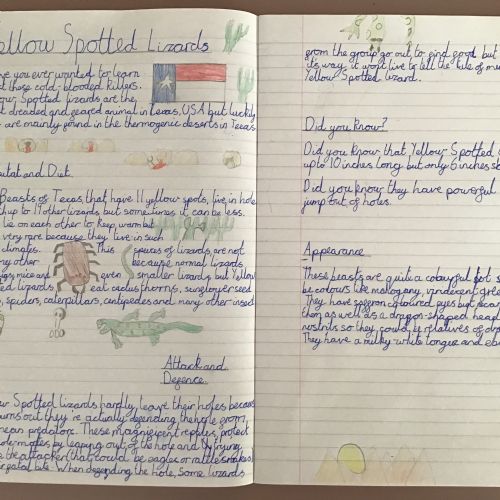 ellow Spotted Lizards
ve you ever wanted to learn
t these cold-blooded killers.
ow Spotted lizards are the
t dreaded and feared animal in Texas, USA but luckily
are mainly found in the thermogenic deserts in Texas
itat and Diet.
Beasts of Texas, that have 11 yellow spots, live in hole
th up to 19 other lizards but sometimes it can be less.
lie on each other to keep warm but
very rare because they live in such
climates. This species of lizards are not
any other because normal lizards
mice and even smaller lizards but Yellow
ed lizards eat cactus thorns, sunflower seed
spiders, caterpillars, centipedes and many other insed
Attack and
Defence.
ow Spotted lizards hardly leave their holes because
turns out they're actually defending the hole from
mean predators. These magnificent reptiles protect
hole mates by leaping out of the hole and
e the attacker (that could be eagles or rattle snakes)
fatal bite. When defending the hole, some lizards
from the group go out to find food but
it's way, it won't live to tell the tale of
Yellow Spotted lizard.
Did you know?
Did you know that Yellow Spotted
up to 10 inches long but only 6 inches
Did you know they have powerful
jump out of holes.
Appearance
These beasts are quite a colourful
be colours like mahogany, viridescent
They have saffron coloured eyes but
them as well as a dragon-shaped head
nostrils so they could be relatives of
They have a milky-white tongue and